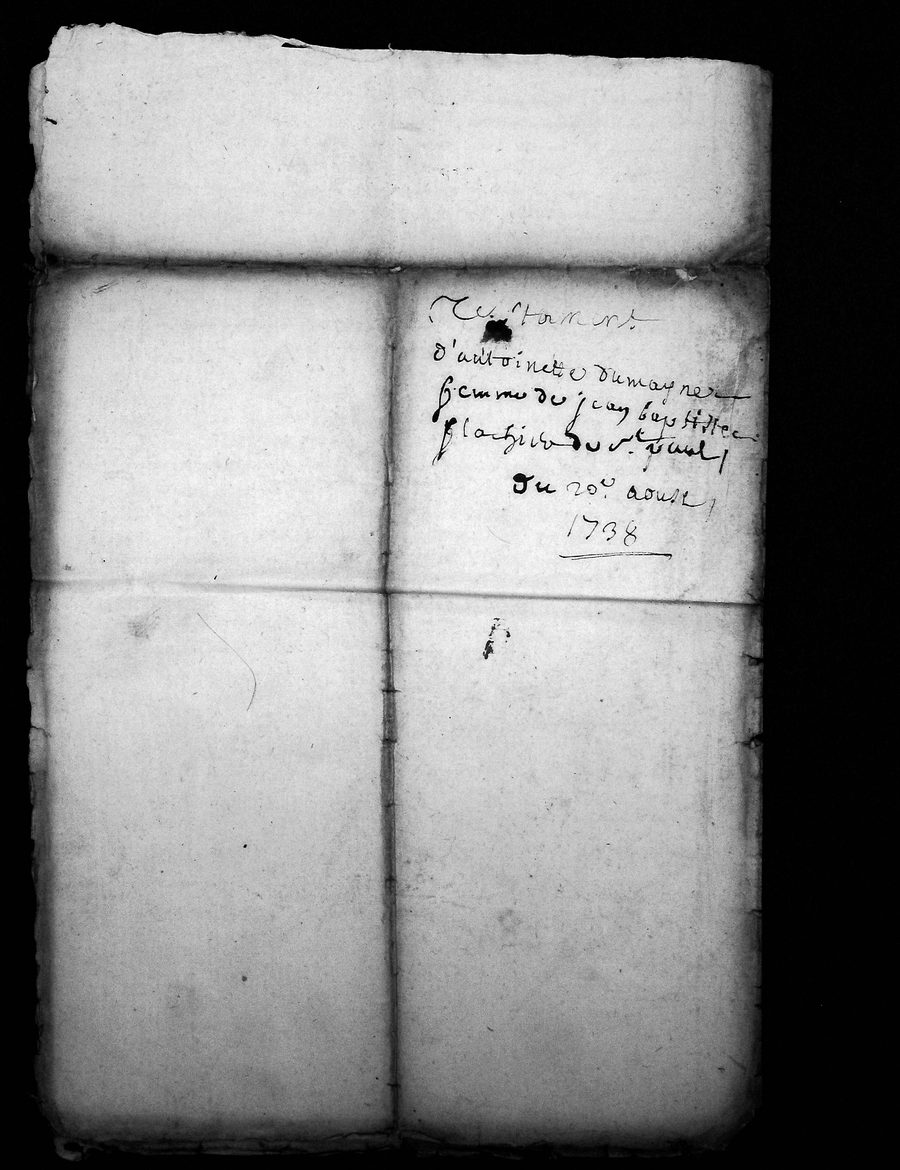 Testament
d'antoinette dumayne
femme de jean baptiste
flachier de st. paul
du 20e. aoust
1738